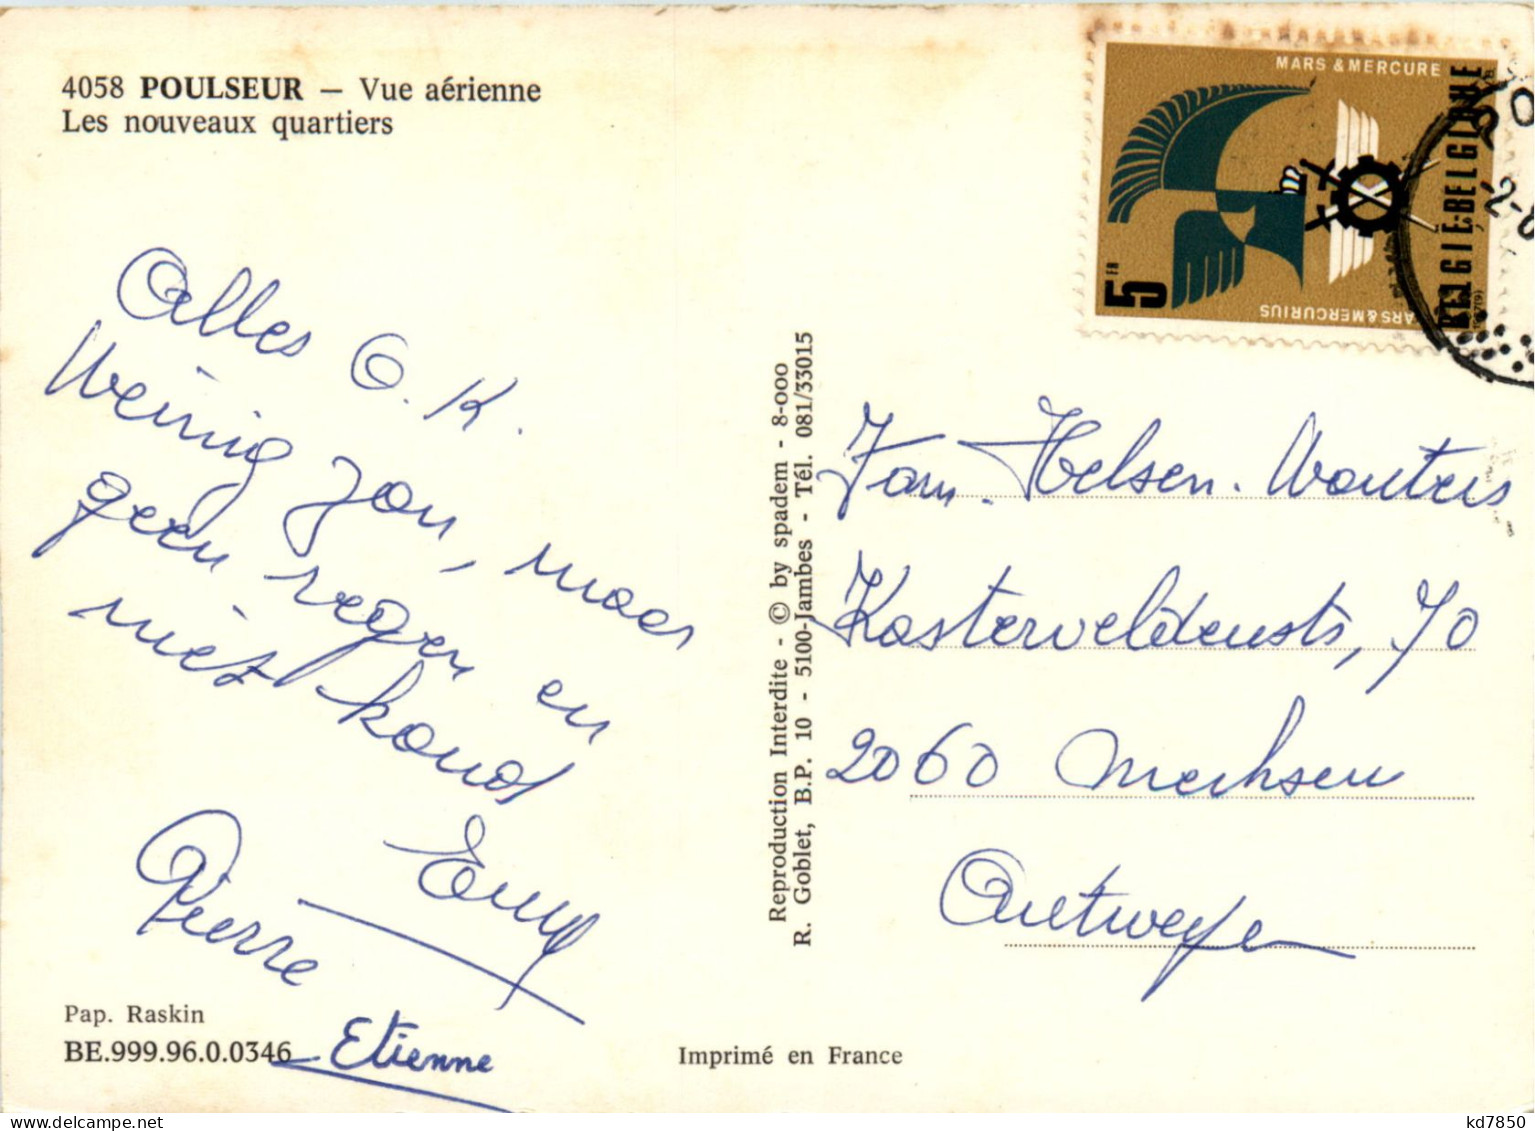 4058 POULSEUR – Vue aérienne
Les nouveaux quartiers
Alles O.K.
Weinig zon, maar
geen regen en
niet koud
Emy
Pierre
Etienne
Pap. Raskin
BE.999.96.0.0346
Imprimé en France
Reproduction Interdite - © by spadem - 8-000
R. Goblet, B.P. 10 - 5100-Jambes - Tél. 081/33015
MARS & MERCURE
BELGIE-BELGIQUE
5 FR
ARS & MERCURIUS
Fam. Helsen. Wouters
Kasterveldenstr, 70
2060 Merksem
Antwerpen
kd7850